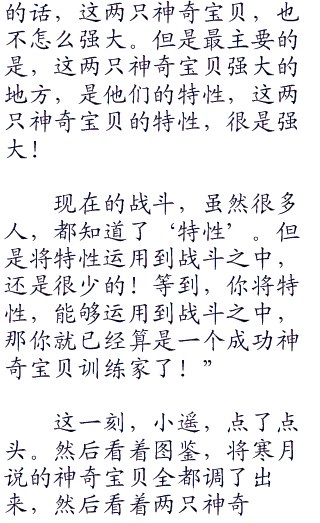 的话，这两只神奇宝贝，也
不怎么强大。但是最主要的
是，这两只神奇宝贝强大的
地方，是他们的特性，这两
只神奇宝贝的特性，很是强
大！
现在的战斗，虽然很多
人，都知道了‘特性’。但
是将特性运用到战斗之中，
还是很少的！等到，你将特
性，能够运用到战斗之中，
那你就已经算是一个成功神
奇宝贝训练家了！”
这一刻，小遥，点了点
头。然后看着图鉴，将寒月
说的神奇宝贝全都调了出
来，然后看着两只神奇